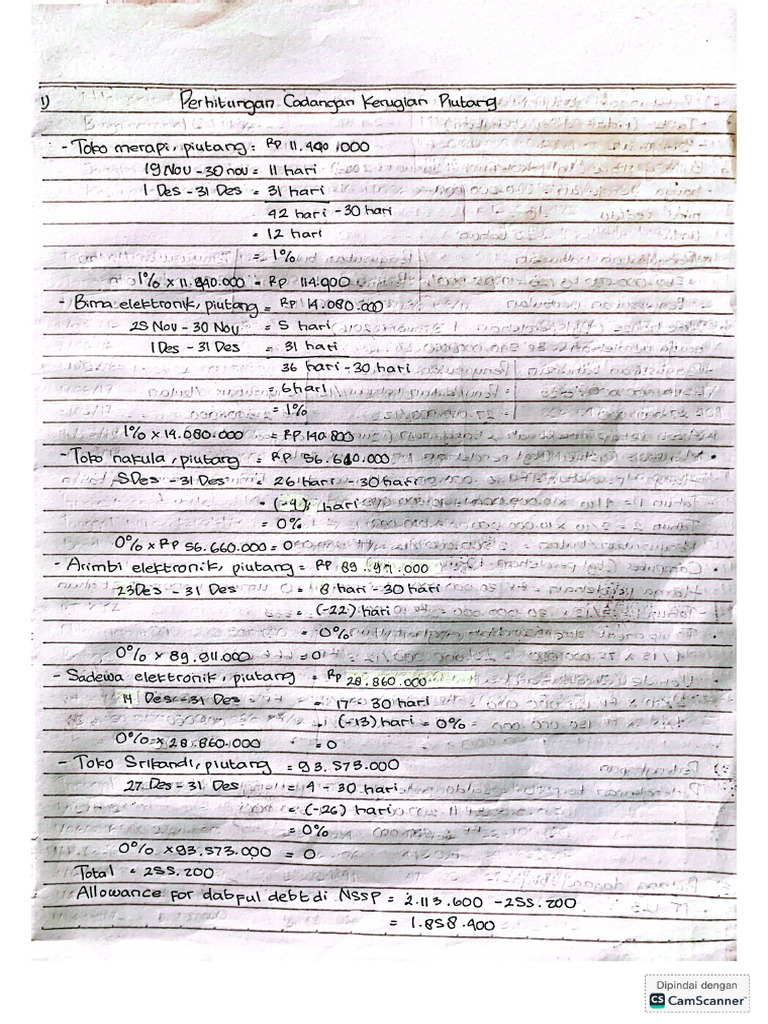 1) Perhitungan Cadangan Kerugian Piutang
- Toko merapi, piutang = Rp 11.440.000
19 Nov - 30 nov = 11 hari
1 Des - 31 Des = 31 hari
42 hari - 30 hari
= 12 hari
= 1%
1% x 11.440.000 = Rp 114.400
- Bima elektronik, piutang = Rp 14.080.000
25 Nov - 30 Nov = 5 hari
1 Des - 31 Des = 31 hari
36 hari - 30 hari
= 6 hari
= 1%
1% x 14.080.000 = Rp 140.800
- Toko nakula, piutang = Rp 56.660.000
5 Des - 31 Des = 26 hari - 30 hari
= (-4) hari
= 0%
0% x Rp 56.660.000 = 0
- Arimbi elektronik, piutang = Rp 89.911.000
23 Des - 31 Des = 8 hari - 30 hari
= (-22) hari
= 0%
0% x 89.911.000 = 0
- Sadewa elektronik, piutang = Rp 28.860.000
14 Des - 31 Des = 17 - 30 hari
= (-13) hari = 0%
0% x 28.860.000 = 0
- Toko Srikandi, piutang = 93.573.000
27 Des - 31 Des = 4 - 30 hari
= (-26) hari
= 0%
0% x 93.573.000 = 0
Total = 255.200
Allowance for dabful debt di NSSP = 2.113.600 - 255.200
= 1.858.400
Dipindai dengan
CS CamScanner